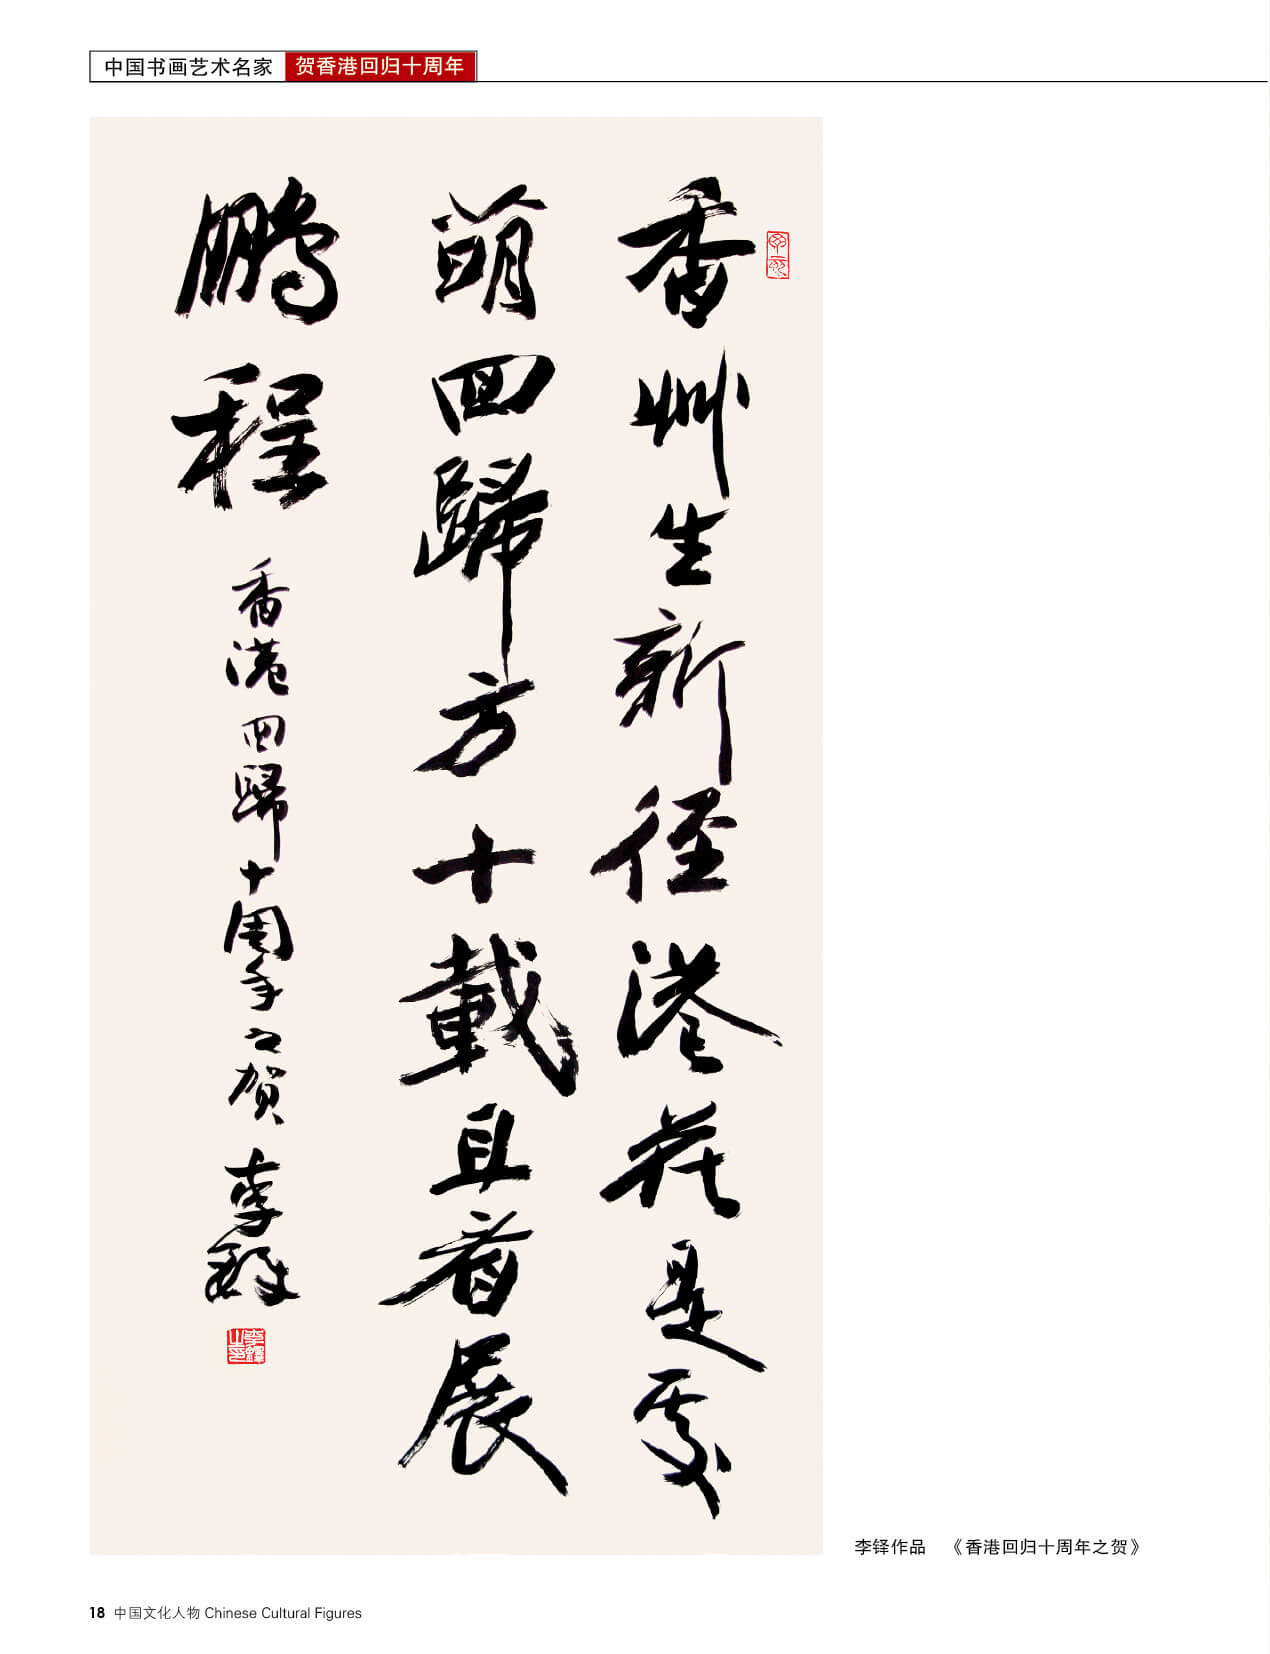 中国书画艺术名家 贺香港回归十周年
香艸生新径港花是處
萌回歸方十載且看展
鵬程
香港回歸十周年之贺 李鐸
李鐸之印
李铎作品 《香港回归十周年之贺》
18 中国文化人物 Chinese Cultural Figures